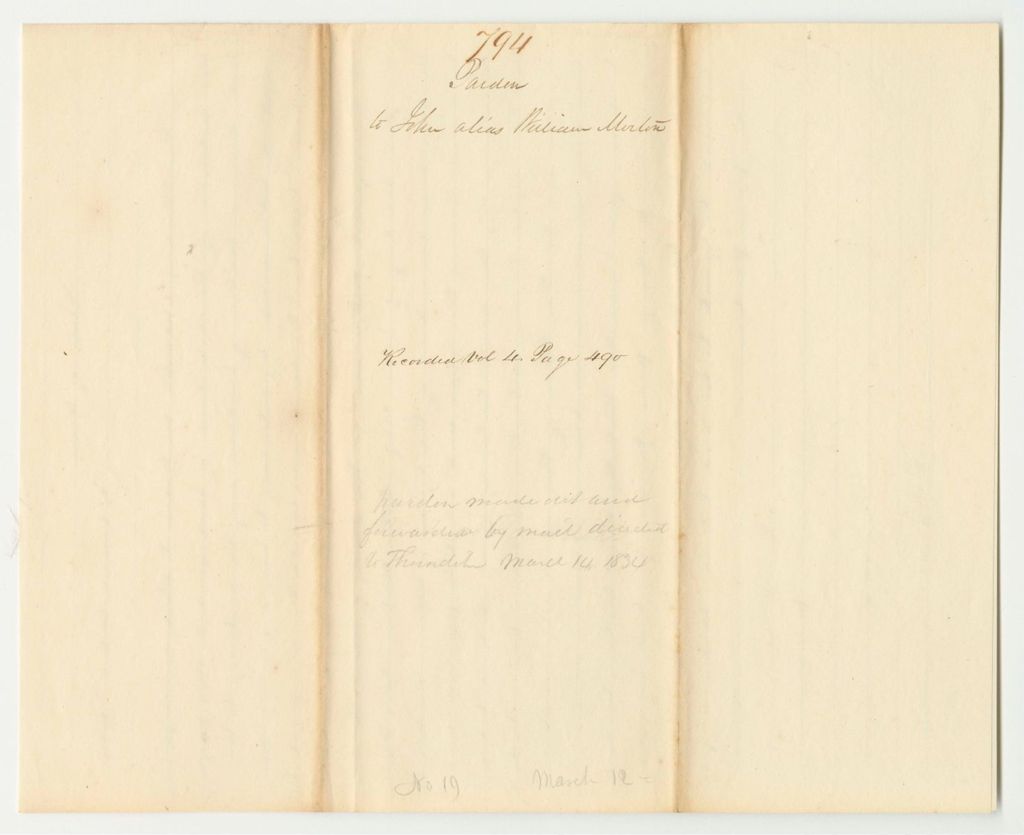 794
Pardon
to John alias William Morton
Recorded Vol 4. Page 490
pardon made out and
forwarded by mail directed
to March 14, 1834
No 19 March 12